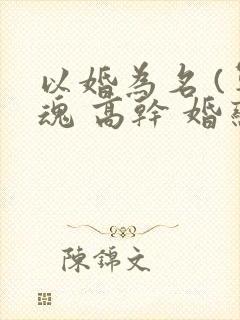 以婚為名(
魂 高幹 婚
陳錦文